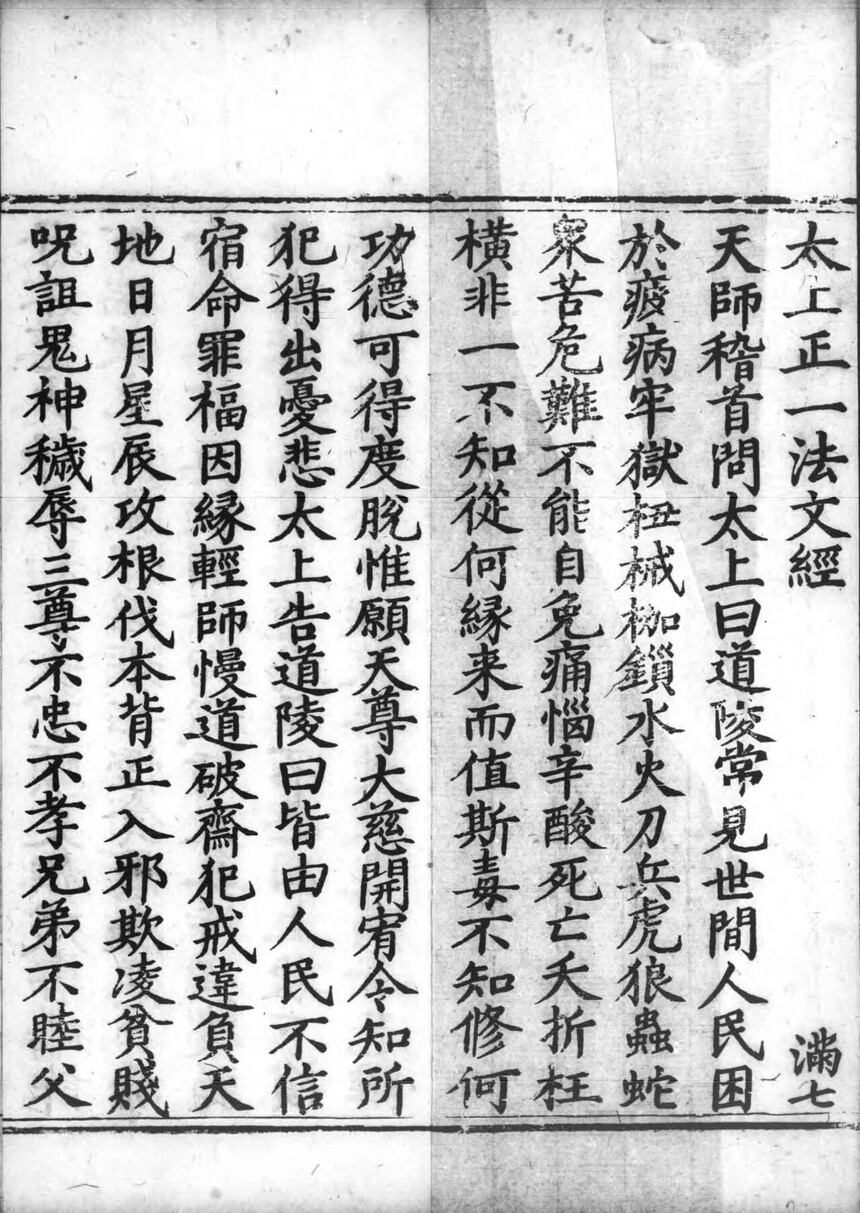 太上正一法文經 滿七
天師稽首問太上曰道陵常見世間人民困
於疲病牢獄杻械枷鎖水火刀兵虎狼蟲蛇
衆苦危難不能自免痛惱辛酸死亡夭折枉
横非一不知從何緣来而值斯毒不知修何
功德可得度脫惟願天尊大慈開宥令知所
犯得出憂悲太上告道陵曰皆由人民不信
宿命罪福因緣輕師慢道破齋犯戒違負天
地日月星辰攻根伐本背正入邪欺凌貧賤
呪詛鬼神穢辱三尊不忠不孝兄弟不睦父